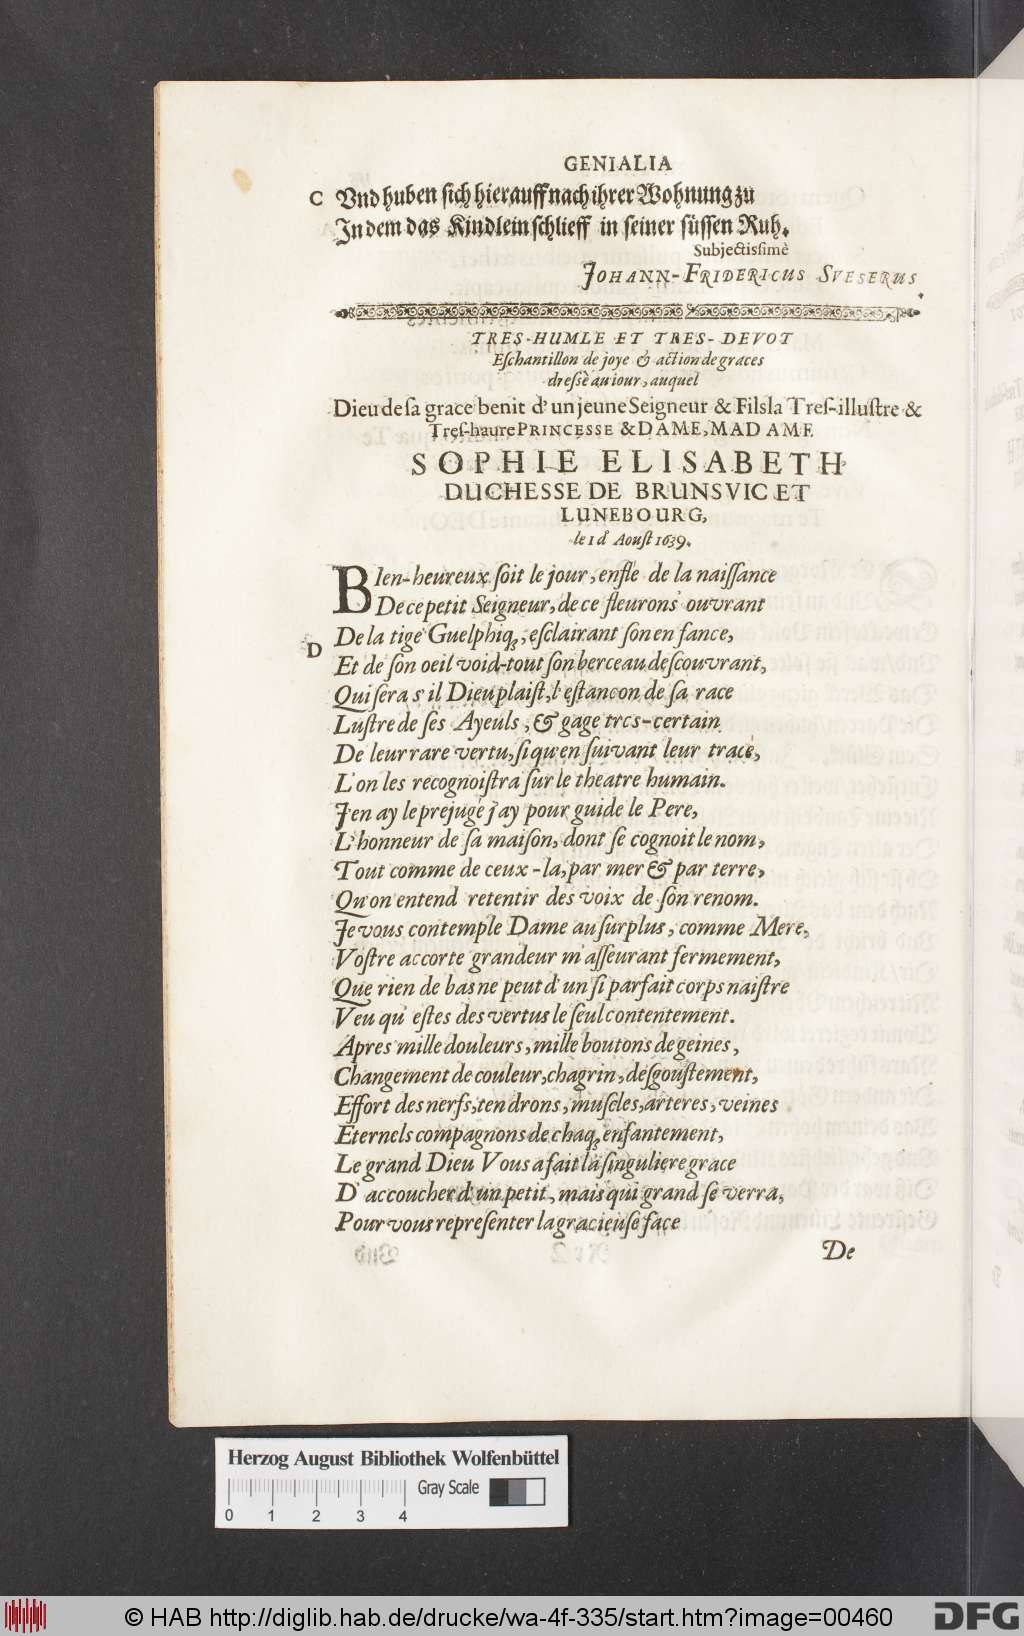 GENIALIA
C Vnd huben sich hierauff nach ihrer Wohnung zu
In dem das Kindlein schlieff in seiner süssen Ruh.
Subjectissimè
JOHANN-FRIDERICUS SVESERUS
TRES-HUMLE ET TRES-DEVOT
Eſchantillon de joye & action de graces
dreſsè au iour, auquel
Dieu de ſa grace benit d'un jeune Seigneur & Filsla Treſ-illuſtre &
Treſ-haure PRINCESSE & DAME, MADAME
SOPHIE ELISABETH
DUCHESSE DE BRUNSVIC ET
LUNEBOURG,
le 1 d' Aouſt 1639.
BIen-heureux ſoit le jour, enfle de la naiſſance
De ce petit Seigneur, de ce fleurons ouvrant
D De la tige Guelphiq;, eſclairant ſon en fance,
Et de ſon oeil void-tout ſon berceau deſcouvrant,
Qui ſera s'il Dieu plaiſt, l'eſtancon de ſa race
Luſtre de ſes Ayeuls, & gage tres-certain
De leur rare vertu, ſi qu'en ſuivant leur trace,
L'on les recognoiſtra ſur le theatre humain.
J'en ay le prejugé j'ay pour guide le Pere,
L'honneur de ſa maiſon, dont ſe cognoit le nom,
Tout comme de ceux-la, par mer & par terre,
Qu'on entend retentir des voix de ſon renom.
Je vous contemple Dame au ſurplus, comme Mere,
Voſtre accorte grandeur m'aſſeurant fermement,
Que rien de bas ne peut d'un ſi parfait corps naiſtre
Veu qu'eſtes des vertus le ſeul contentement.
Apres mille douleurs, mille boutons de geines,
Changement de couleur, chagrin, deſgouſtement,
Effort des nerfs, ten drons, muſcles, arteres, veines
Eternels compagnons de chaq; enfantement,
Le grand Dieu Vous a fait la ſinguliere grace
D'accoucher d'un petit, mais qui grand ſe verra,
Pour vous repreſenter la gracieuſe face
De
Herzog August Bibliothek Wolfenbüttel
Gray Scale
0 1 2 3 4
© HAB http://diglib.hab.de/drucke/wa-4f-335/start.htm?image=00460
DFG